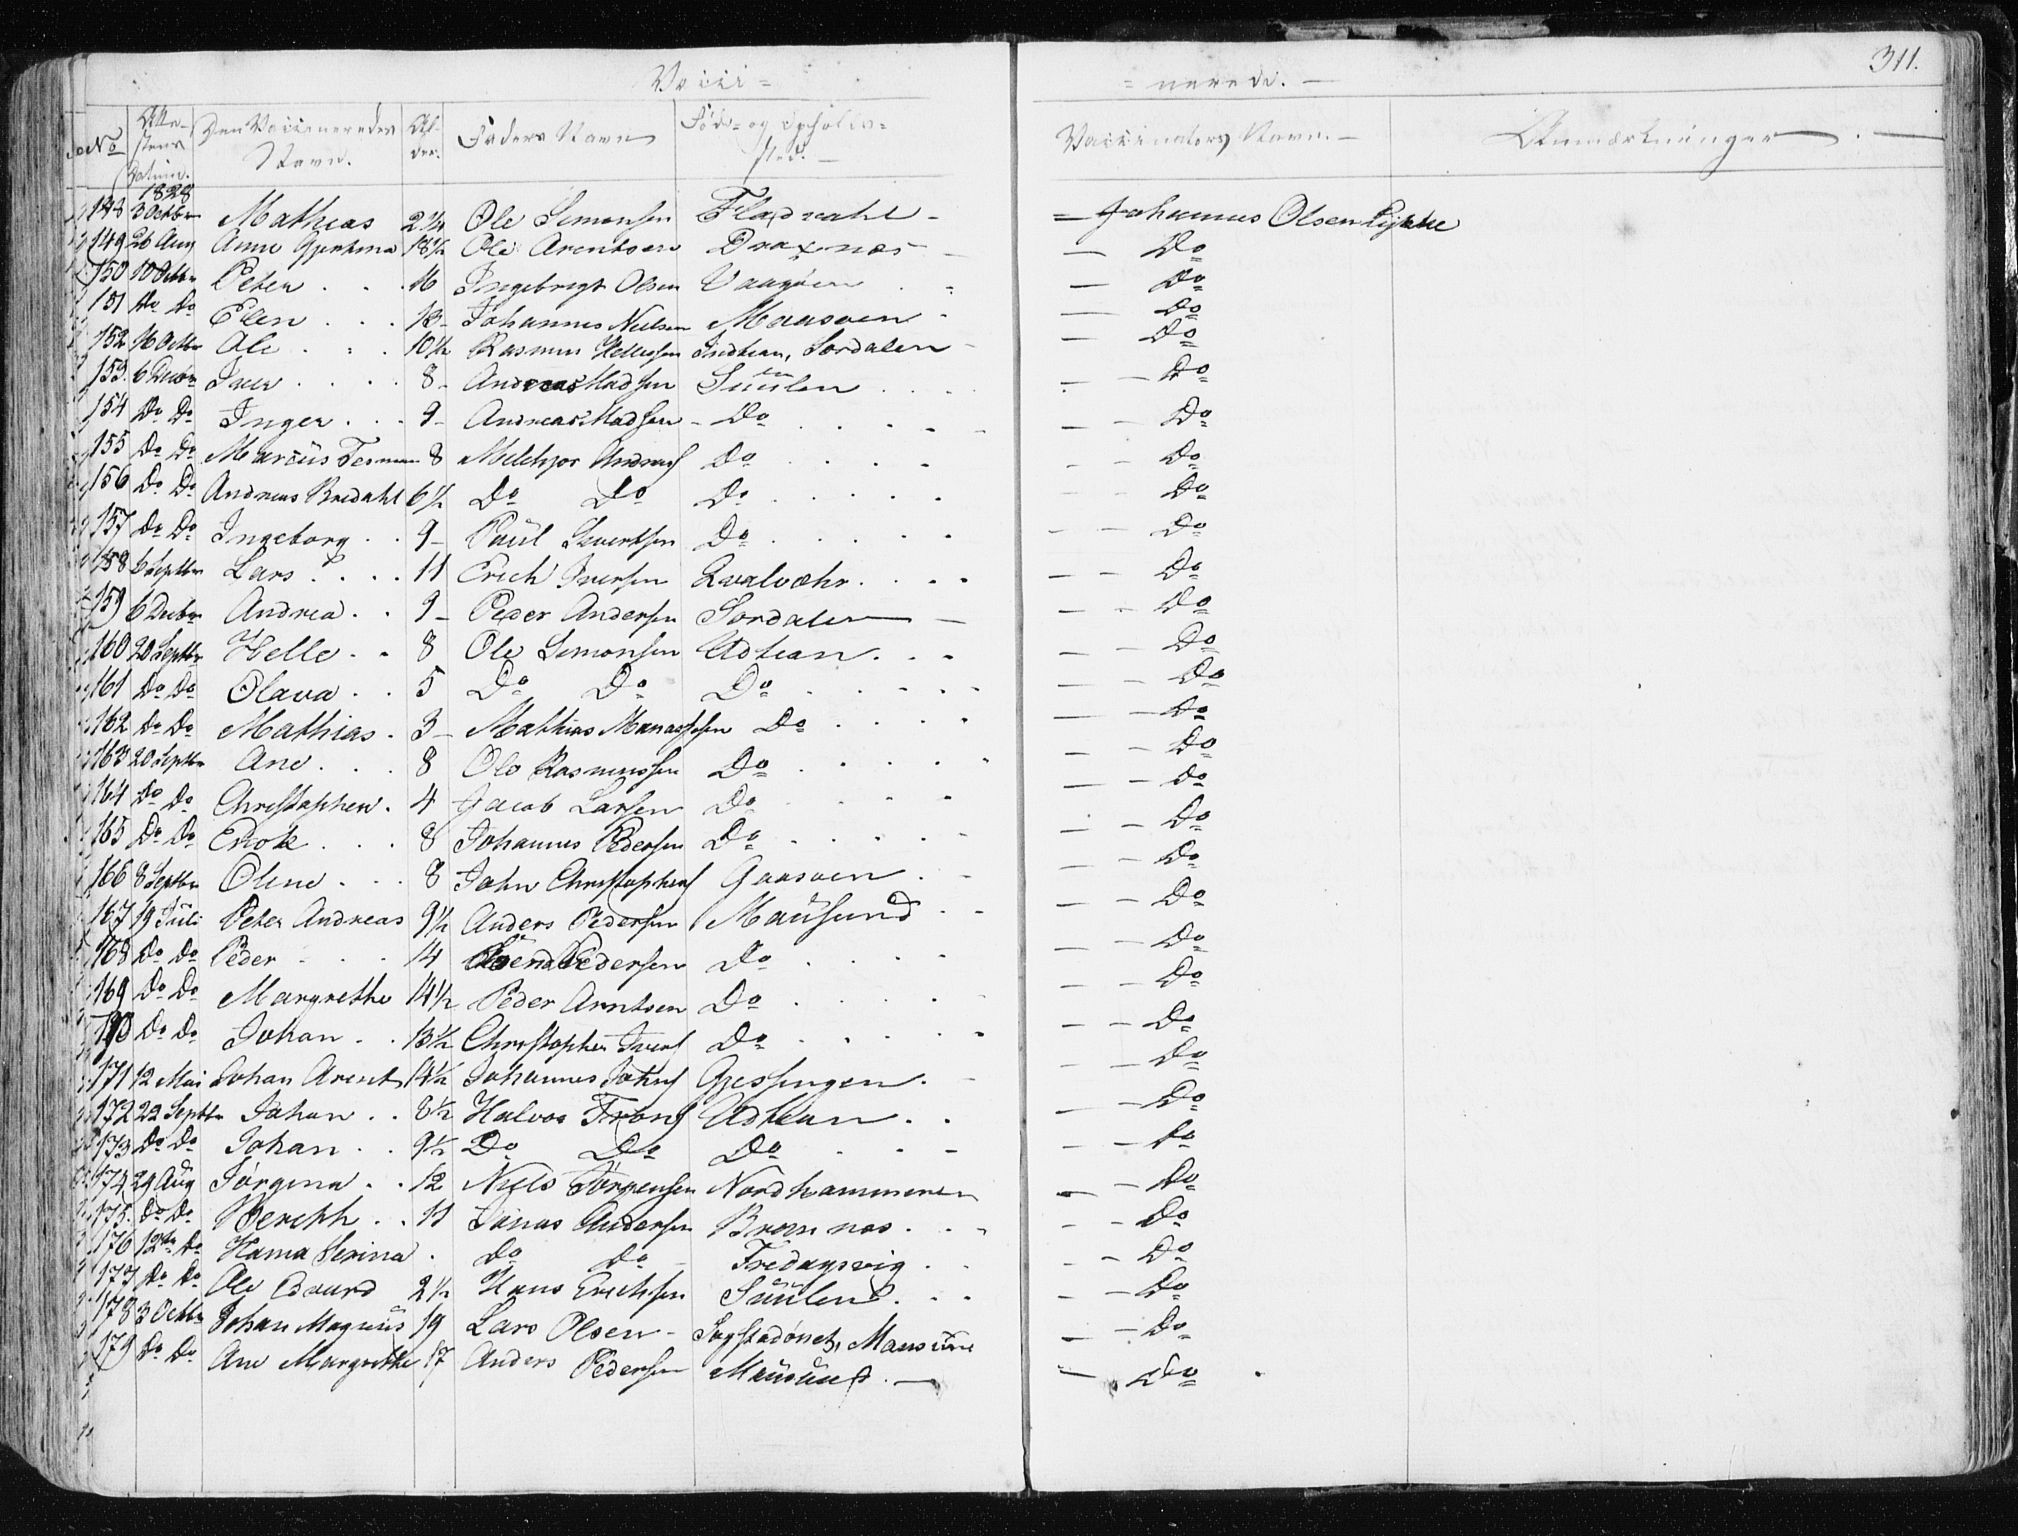 Vacci= =nerede. —
311.
No Atte-stens Datum. Den Vaccineredes Navn. Al-der. Faders Navn Føde- og Opholds-sted. — Vaccinators Navn. — Anmærkninger. —
1828
148 3 Octbr Mathias 2 1/4 Ole Simonsen — Johannes Olsen Lykke
149 26 Aug Anne 18 1/2 Ole Arentsen — Do
150 10 Octbr Peter 16 Ingebrigt Olsen Vaagøen — Do
151 Do Do Elen 13 Johannes Nielsen Maasøen — Do
152 16 Octbr Ole 10 1/2 Rasmus Sordalen — Do
153. 6 Decbr Iver 8 — Andreas Madsen Suulen — Do
154 Do Do Inger 9 — Andreas Madsen — Do — Do
155 Do Do Marcus 8 Melchjor Do — Do
156 Do Do Andreas Bredahl 6 1/2 Do Do Do — Do
157 Do Do Ingeborg 9 — Paul Sivertsen Do — Do
158 6 Septbr Lars 11 Erich Iversen Qvalvæhr — Do
159 6 Decbr Andrea 9 — Peder Andersen Sordalen — Do
160 20 Septbr Helle 8 Ole Simonsen Udtian — Do
161 Do Do Olava 5 Do Do Do — Do
162 Do Do Mathias 3 — Mathias Manassesen Do — Do
163 20 Septbr Ane 8 Ole Rasmussen Do — Do
164 Do Do Christopher 4 Jacob Larsen Do — Do
165 Do Do Enok 8 Johannes Pedersen Do — Do
166 8 Septbr Oline 8 John Christophers Gaasøen — Do
167 19 Juli Peter Andreas 9 1/2 Anders Pedersen Mausund — Do
168 Do Do Peder 14 Pedersen Do — Do
169 Do Do Margrethe 14 1/2 Peder Arntsen Do — Do
170 Do Do Johan 13 1/2 Christopher Ivers Do — Do
171 12 Mai Johan Arent 14 1/2 Johannes Johns Gjessingen — Do
172 22 Septbr Johan 8 1/2 Halvor Trons Udtian — Do
173 Do Do Johan 9 1/2 Do Do Do — Do
174 29 Aug Jørgina 12 Niels Jørgensen Nordhammeren — Do
175. Do Do Bereth 11 Jonas Andersen — Do
176 12te Do Hanna Serina Do Do Fredagsvig — Do
177 Do Do Ole Edvard 2 1/2 Hans Erichsen Suulen — Do
178 3 Octbr Johan Magnus 19 Lars Olsen — — Do
179 Do Do Ane Margrethe 17 Anders Pedersen Mausund — Do